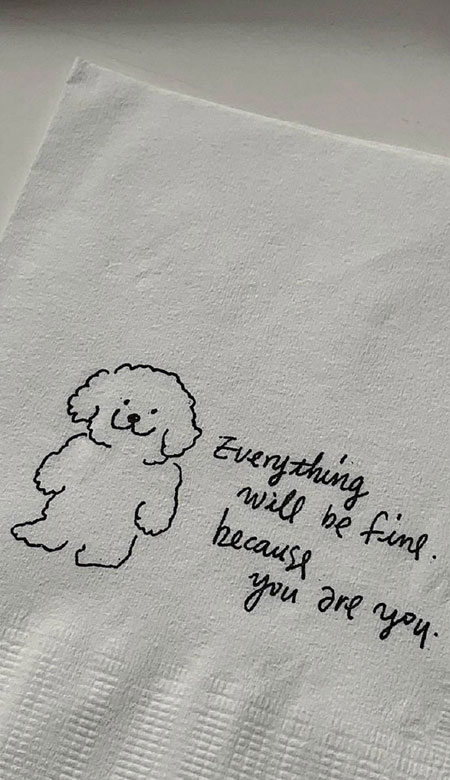 Everything
will be fine.
because
you are you.